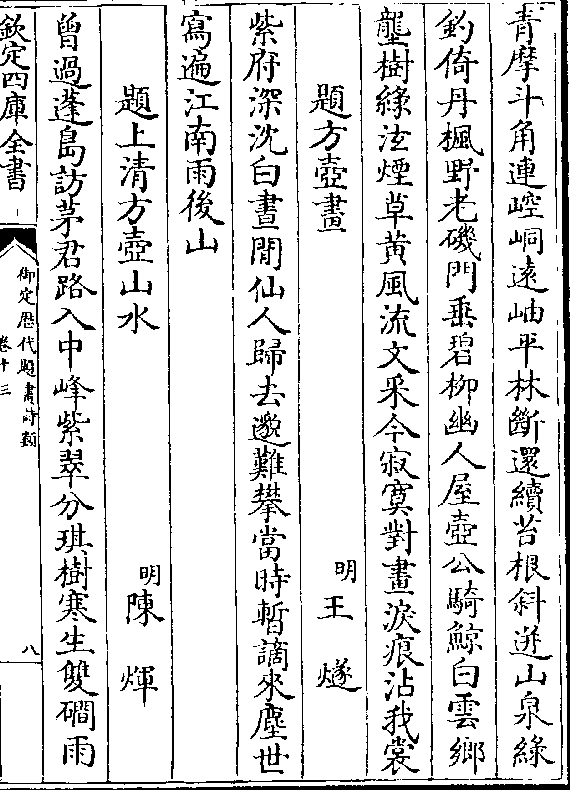 青摩斗角連崆峒遠岫平林斷還續苔根斜迸山泉綠
釣倚丹楓野老磯門垂碧柳幽人屋壺公騎鯨白雲鄉
壟樹綠沈煙草黃風流文采今寂寞對畫淚痕沾我裳
題方壺畫 明 王燧
紫府深沈白晝閒仙人歸去邈難攀當時暫謫來塵世
寫遍江南雨後山
題上清方壺山水 明 陳煇
曾過蓬島訪茅君路入中峰紫翠分琪樹寒生雙磵雨
欽定四庫全書
御定歷代題畫詩類
卷十三
八